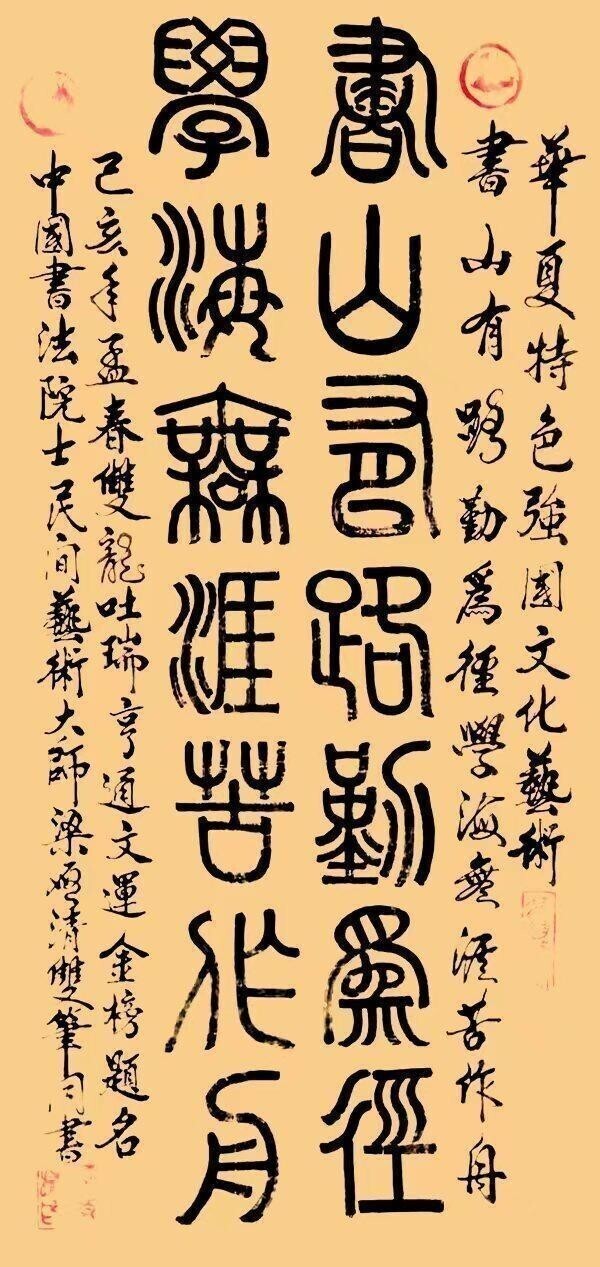 華夏特色強國文化藝術
書山有路勤為徑學海無涯苦作舟
書山有路勤為徑
學海無涯苦作舟
己亥年孟春雙龍吐瑞亨通文運金榜題名
中國書法院士民间藝術大師梁啟清雙筆同書